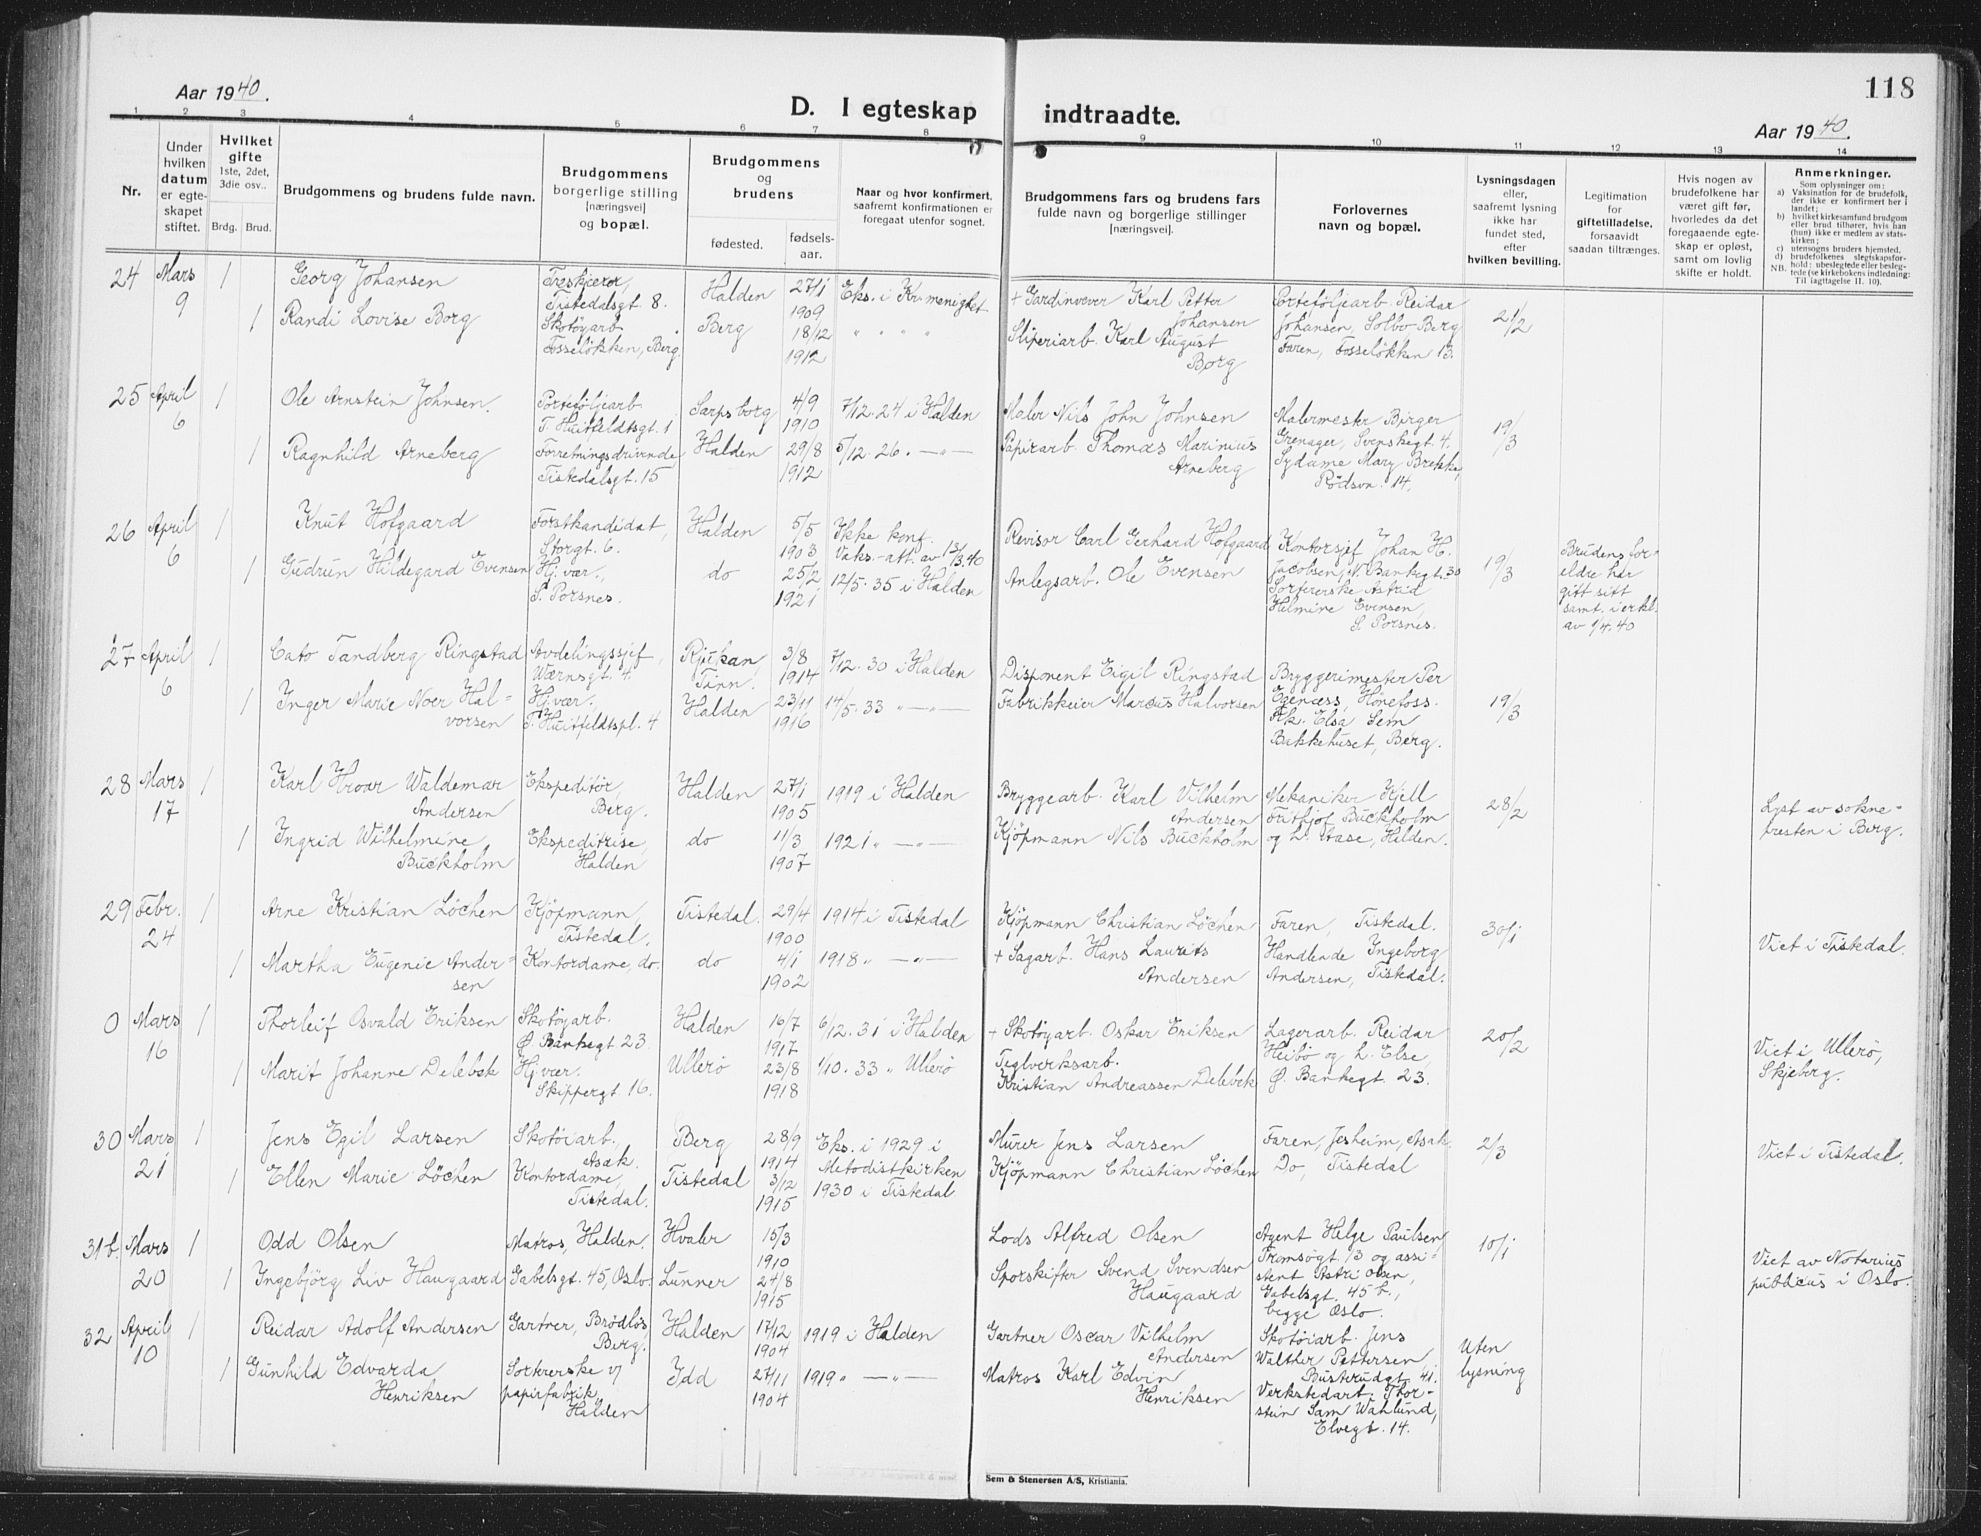 118
Aar 1940.
D. I egteskap indtraadte.
Aar 1940.
1 2 3 4 5 6 7 8 9 10 11 12 13 14
Nr.
Under hvilken datum er egteskapet stiftet.
Hvilket gifte 1ste, 2det, 3die osv..
Brdg. Brud.
Brudgommens og brudens fulde navn.
Brudgommens borgerlige stilling [næringsvei] og bopæl.
Brudgommens og brudens
fødested. fødselsaar.
Naar og hvor konfirmert, saafremt konfirmationen er foregaat utenfor sognet.
Brudgommens fars og brudens fars fulde navn og borgerlige stillinger [næringsvei].
Forlovernes navn og bopæl.
Lysningsdagen eller, saafremt lysning ikke har fundet sted, efter hvilken bevilling.
Legitimation for giftetilladelse, forsaavidt saadan tiltrænges.
Hvis nogen av brudefolkene har været gift før, hvorledes da det foregaaende egteskap er opløst, samt om lovlig skifte er holdt.
Anmerkninger.
Som oplysninger om:
a) Vaksination for de brudefolk, der ikke er konfirmert her i landet;
b) hvilket kirkesamfund brudgom eller brud tilhører, hvis han (hun) ikke er medlem av statskirken;
c) utensogns bruders hjemsted.
d) brudefolkenes slegtskapsforhold: ubeslegtede eller beslegtede (se kirkebokens indledning: Til iagttagelse II. 10).
NB.
24 Mars 9 1 Georg Johansen Treskjerer, Tistedalsgt 8. Halden 27/1 1909 Eks. i Kr. menighet + Gardinvever Karl Petter Johansen Porteføljearb. Reidar Johansen, Solbo-Berg 21/2
1 Randi Lovise Borg Skotøyarb. Fosseløkken, Berg. Berg 18/12 1912 " " " " Sliperiarb. Karl August Borg Faren, Fosseløkken 13.
25 April 6 1 Ole Arnstein Johnsen. Porteføljearb. T. Huitfeldtsgt. 1 Sarpsborg 4/9 1910 7/12. 24 i Halden Maler Nils John Johnsen Malermester Birger Grenager, Svenskegt 4. 19/3
1 Ragnhild Arneberg Forretningsdrivende Tistedalsgt. 15 Halden 29/8 1912 5/12. 26. —"— Papirarb. Thomas Marinius Arneberg Sydame Mary Brekke, Rødsvn. 14.
26 April 6 1 Knut Hofgaard Forstkandidat, Storgt. 6. Halden 5/5 1903 Ikke konf. Vaks.-att. av 13/3.40 Revisor Carl Gerhard Hofgaard Kontorsjef Johan H. Jacobsen, N. Bankegt. 30 19/3 Brudens foreldre har gitt sitt samt. i erkl. av 1/4. 40
1 Gudrun Hildegard Evensen Hj. vær., S. Porsnes. do 25/2 1921 12/5. 35 i Halden Anlegsarb. Ole Evensen Sortererske Astrid Helmine Evensen, S. Porsnes.
27 April 6 1 Cato Tandberg Ringstad Avdelingssjef, Wærnsgt. 4 Rjukan, Tinn. 3/8 1914 7/12. 30 i Halden Disponent Eigil Ringstad Bryggerimester Per Egenæss, Hønefoss. 19/3
1 Inger Marie Noer Halvorsen Hj. vær. T. Huitfeldtspl. 4 Halden 23/11 1916 14/5. 33 "—"— Fabrikkeier Marcus Halvorsen Frk. Elsa Sem Bakkehuset, Berg.
28 Mars 17 1 Karl Hroar Waldemar Andersen Ekspeditør, Berg. Halden 27/1 1905 1919 i Halden Bryggearb. Karl Vilhelm Andersen Mekaniker Kjell Frithjof Buckholm 28/2 Lyst av sognepresten i Berg.
1 Ingrid Wilhelmine Buckholm Ekspeditrise, Halden do 11/3 1907 1921 "—"— Kjøpmann Nils Buckholm og h. Aase, Halden.
29 Febr. 24 1 Arne Kristian Löchen Kjøpmann, Tistedal. Tistedal. 29/4 1900 1914 i Tistedal Kjøpmann Christian Löchen Faren, Tistedal. 30/1 Viet i Tistedal.
1 Martha Eugenie Andersen Kontordame, do. do 4/1 1902 1918 "—"— + Sagarb. Hans Laurits Andersen Handlende Ingeborg Andersen, Tistedal.
0 Mars 16 1 Thorleif Osvald Eriksen Skotøyarb. Ø. Bankegt 23. Halden 16/7 1917 6/12. 31 i Halden + Skotøyarb. Oskar Eriksen Lagerarb. Reidar Heibø og h. Else, 20/2 Viet i Ullerø, Skjeberg.
1 Marit Johanne Delebæk Hj. vær. Skippergt. 16. Ullerø 23/8 1918 1/10. 33 " Ullerø Teglverksarb. Kristian Andreassen Delebek Ø. Bankegt. 23.
30 Mars 21 1 Jens Egil Larsen Skotøiarb., Asak. Berg 28/9 1914 Eks. i 1929 i Metodistkirken Murer Jens Larsen Faren, Jesheim, Asak 2/3 Viet i Tistedal.
1 Ellen Marie Löchen Kontordame, Tistedal. Tistedal 3/12 1915 1930 i Tistedal Kjøpmann Christian Löchen Do, Tistedal
31 b. Mars 20 1 Odd Olsen Matros, Halden. Hvaler 15/3 1910 Lods Alfred Olsen Agent Helge Paulsen Tromsøgt. 13 og assistent Astri Olsen, 10/1 Viet av Notarius publicus i Oslo.
1 Ingebjørg Liv Haugaard Gabelsgt. 45, Oslo. Lunner 24/8 1915 Sporskifter Svend Svendsen Haugaard Gabelsgt. 45 b., begge Oslo.
32 April 10 1 Reidar Adolf Andersen Gartner, Brødløs, Berg. Halden 17/12 1904 1919 i Halden Gartner Oscar Vilhelm Andersen Skotøiarb. Jens Walther Pettersen, Busterudgt. 41. Uten lysning
1 Gunhild Edvarda Henriksen Sortererske v/ papirfabrik, Halden Idd 27/11 1904 1919 "—"— Matros Karl Edvin Henriksen Verkstedarb. Thorstein Sam Wahlund, Elvegt. 14.
Sem & Stenersen A/S, Kristiania.